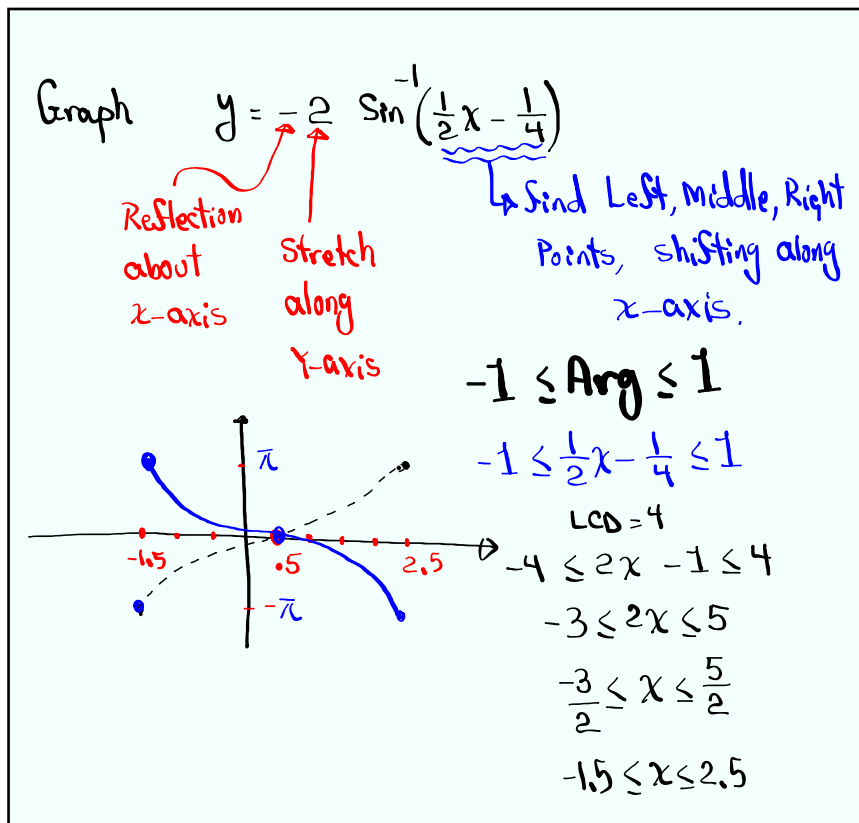 Graph y = -2 Sin⁻¹(1/2 x - 1/4)
Reflection
about
x-axis
Stretch
along
Y-axis
find Left, Middle, Right
Points, shifting along
x-axis.
-1 ≤ Arg ≤ 1
-1 ≤ 1/2 x - 1/4 ≤ 1
LCD = 4
-4 ≤ 2x - 1 ≤ 4
-3 ≤ 2x ≤ 5
-3/2 ≤ x ≤ 5/2
-1.5 ≤ x ≤ 2.5
π
-1.5 .5 2.5
-π